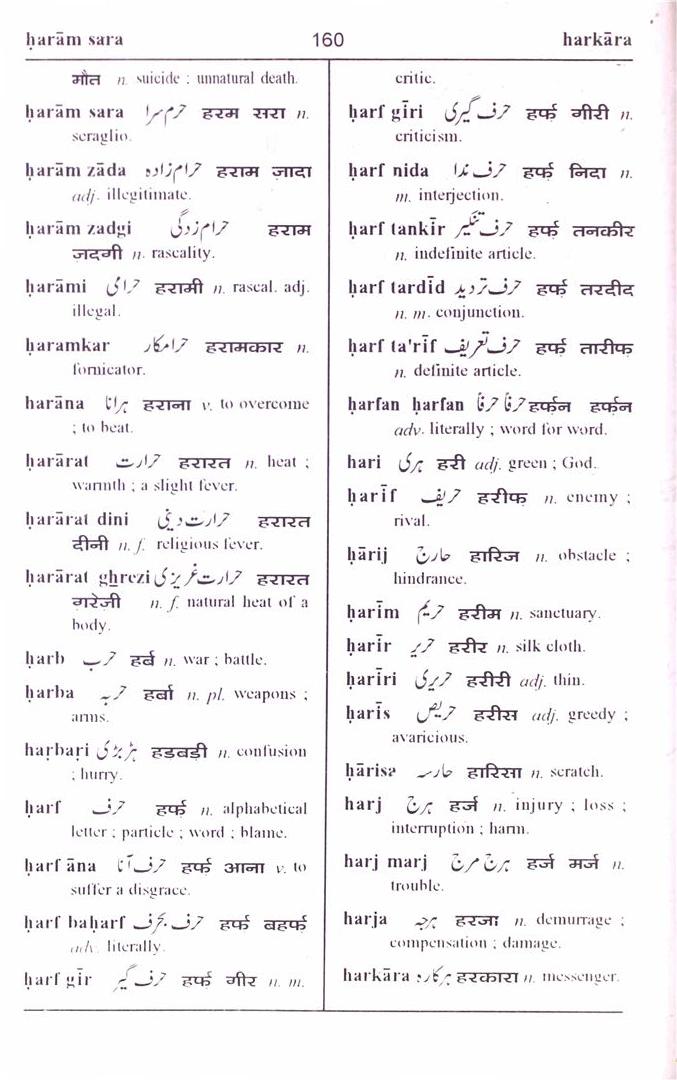 ḥarām sara 160 harkāra
मौत n. suicide ; unnatural death.
ḥarām sara حرم سرا हरम सरा n.
seraglio.
ḥarām zāda حرام زادہ हराम ज़ादा
adj. illegitimate.
ḥarām zadgi حرام زدگی हराम
ज़दगी n. rascality.
ḥarāmi حرامی हरामी n. rascal. adj.
illegal.
ḥaramkar حرامکار हरामकार n.
fornicator.
harāna ہرانا हराना v. to overcome
; to beat.
ḥarārat حرارت हरारत n. heat ;
warmth ; a slight fever.
ḥarārat dini حرارت دینی हरारत
दीनी n. f. religious fever.
ḥarārat ghrezi حرارت غریزی हरारत
गरेज़ी n. f. natural heat of a
body.
ḥarb حرب हर्ब n. war ; battle.
ḥarba حربہ हर्बा n. pl. weapons ;
arms.
haṛbaṛi ہڑبڑی हडबड़ी n. confusion
; hurry.
ḥarf حرف हर्फ़ n. alphabetical
letter ; particle ; word ; blame.
ḥarf āna حرف آنا हर्फ़ आना v. to
suffer a disgrace.
ḥarf baḥarf حرف بحرف हर्फ़ बहर्फ़
adv. literally.
ḥarf gīr حرف گیر हर्फ़ गीर n. m.
critic.
ḥarf gīri حرف گیری हर्फ़ गीरी n.
criticism.
ḥarf nida حرف ندا हर्फ़ निदा n.
m. interjection.
ḥarf tankīr حرف تنکیر हर्फ़ तनकीर
n. indefinite article.
ḥarf tardīd حرف تردید हर्फ़ तरदीद
n. m. conjunction.
ḥarf ta'rīf حرف تعریف हर्फ़ तारीफ़
n. definite article.
ḥarfan ḥarfan حرفاً حرفاً हर्फ़न हर्फ़न
adv. literally ; word for word.
hari ہری हरी adj. green ; God.
ḥarīf حریف हरीफ़ n. enemy ;
rival.
ḥārij حارج हारिज n. obstacle ;
hindrance.
ḥarīm حریم हरीम n. sanctuary.
ḥarīr حریر हरीर n. silk cloth.
ḥarīri حریری हरीरी adj. thin.
ḥarīs حریص हरीस adj. greedy ;
avaricious.
ḥārisa حارسہ हारिसा n. scratch.
harj ہرج हर्ज n. injury ; loss ;
interruption ; harm.
harj marj ہرج مرج हर्ज मर्ज n.
trouble.
harja ہرجہ हरजा n. demurrage ;
compensation ; damage.
harkāra ہرکارہ हरकारा n. messenger.